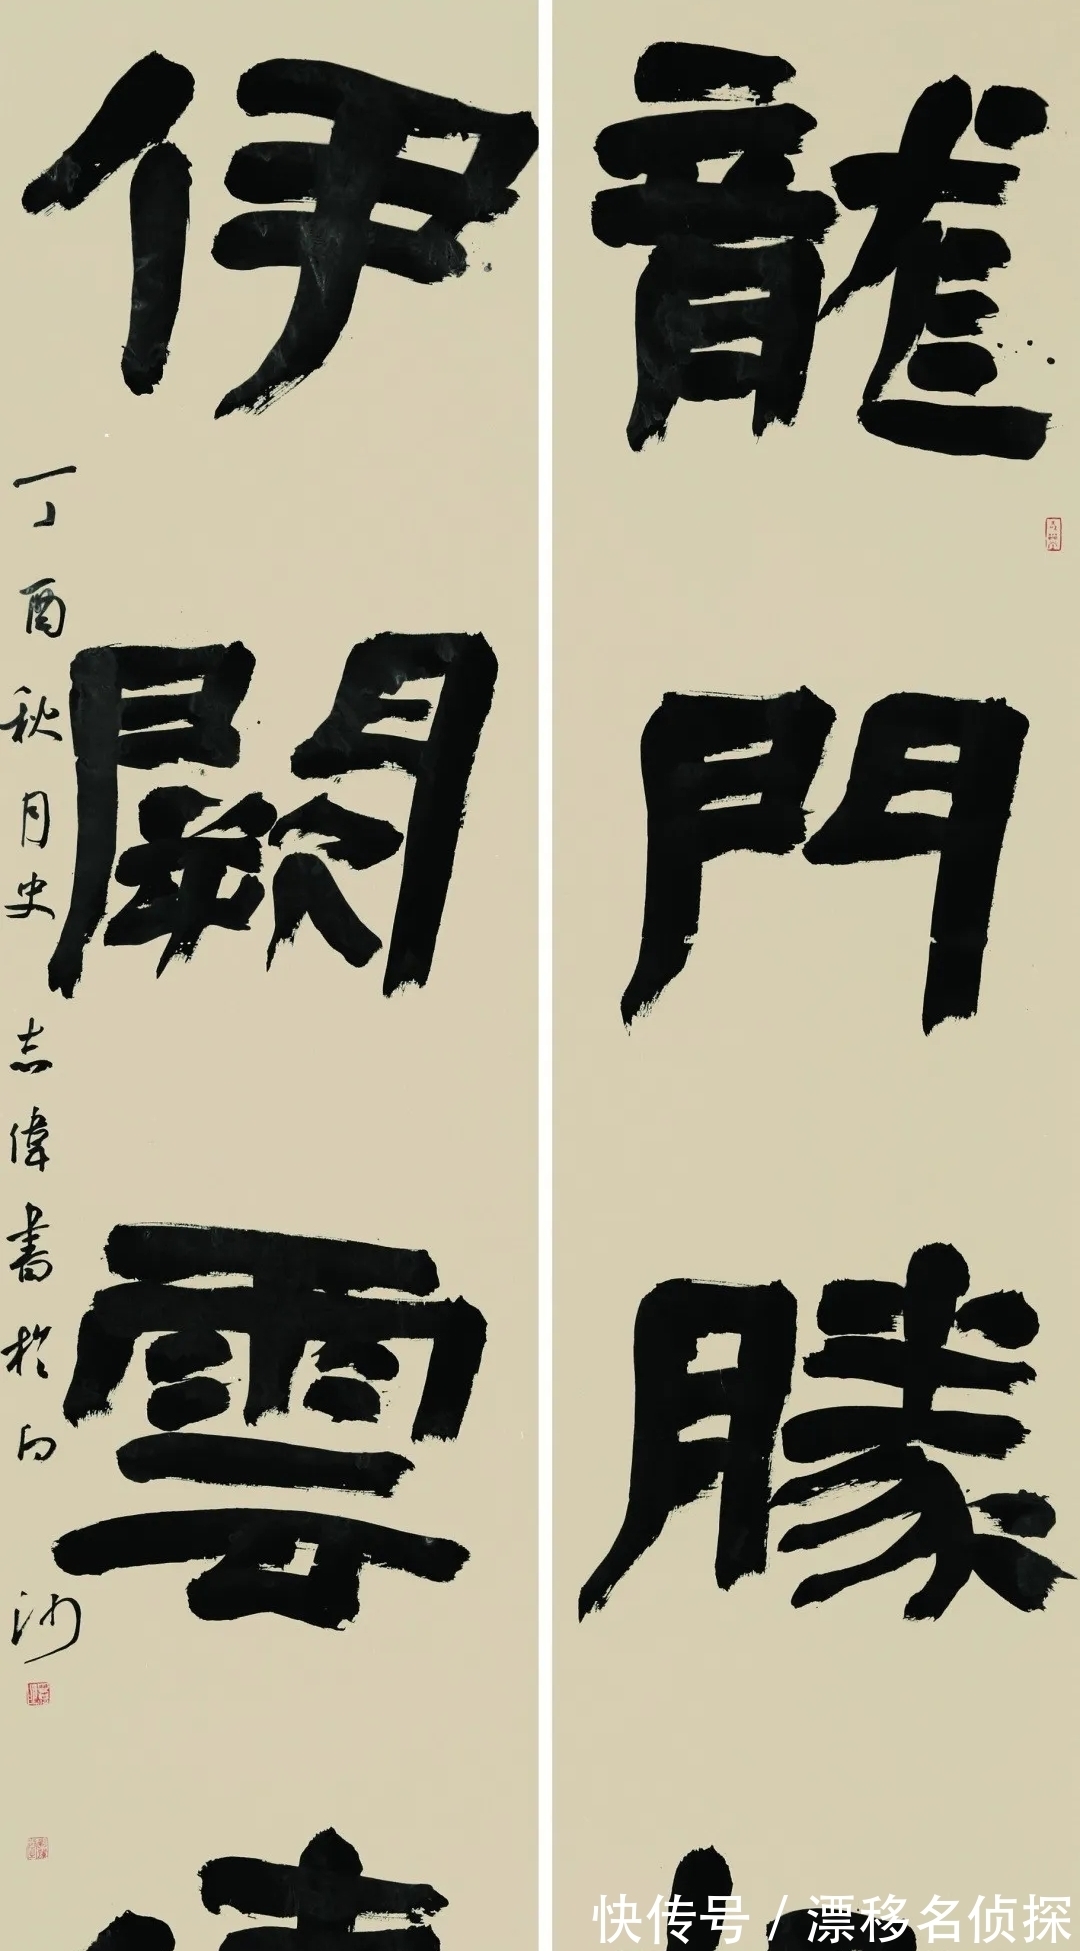 龍門勝
伊闕雲
丁酉秋月史志偉書於白沙
快传号 / 漂移名侦探